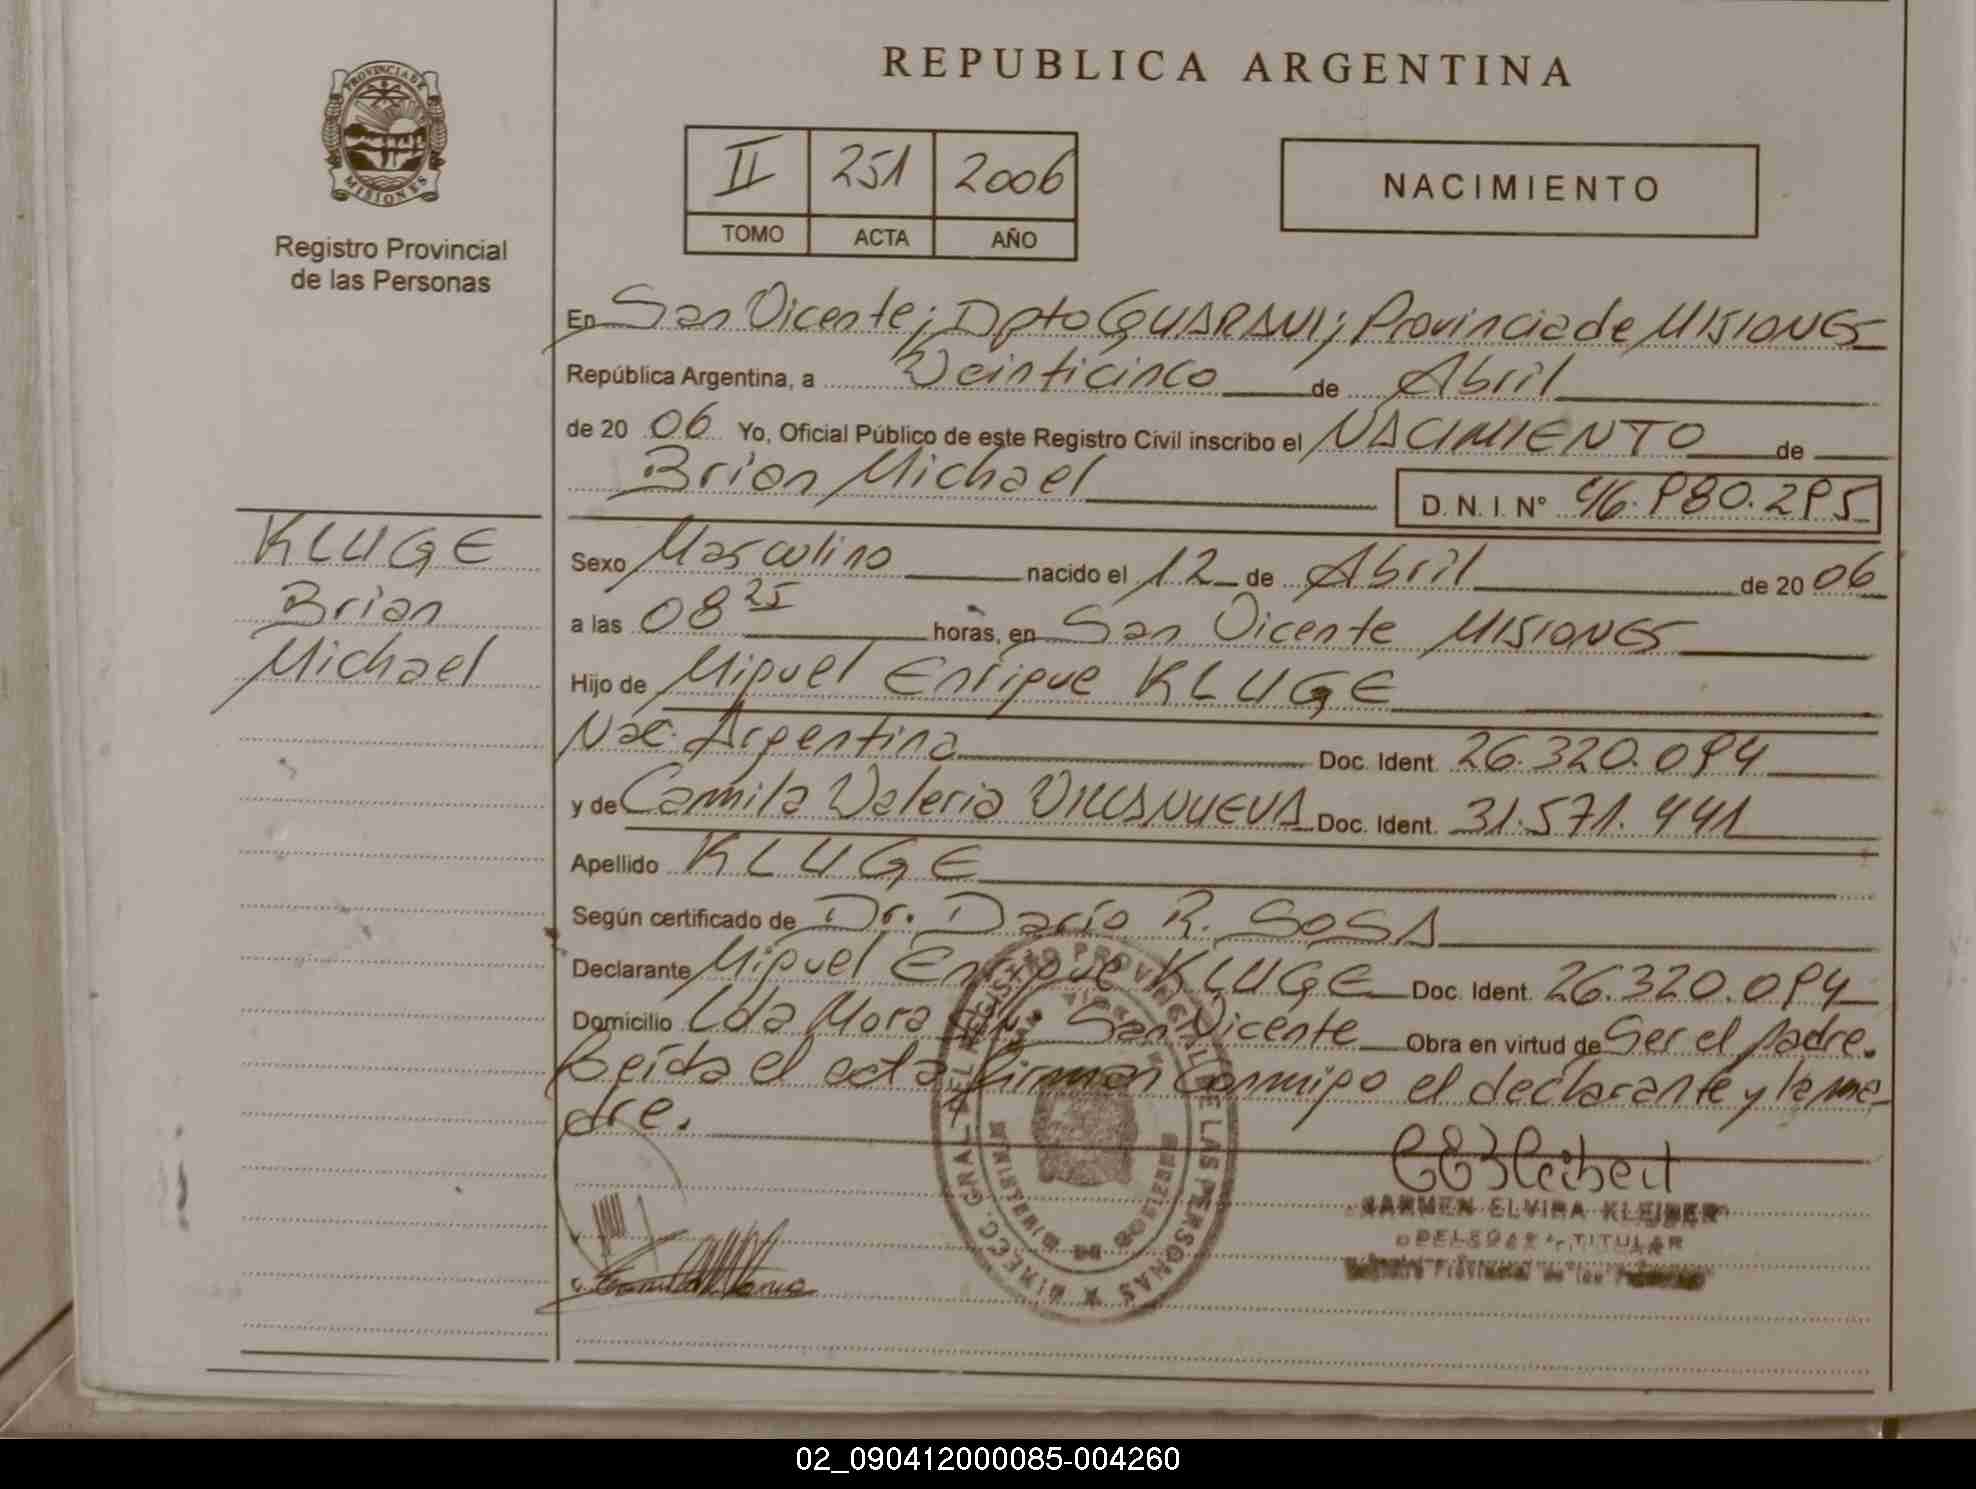 PROVINCIA DE
MISIONES
Registro Provincial
de las Personas
KLUGE
Brian
Michael
REPUBLICA ARGENTINA
II 251 2006
TOMO ACTA AÑO
NACIMIENTO
En San Vicente; Dpto GUARANI; Provincia de MISIONES
República Argentina, a Veinticinco de Abril
de 20 06 Yo, Oficial Público de este Registro Civil inscribo el NACIMIENTO de
Brian Michael D. N. I. Nº 46.980.295
Sexo Masculino nacido el 12 de Abril de 20 06
a las 08 25 horas, en San Vicente MISIONES
Hijo de Miguel Enrique KLUGE
Nac. Argentina Doc. Ident. 26.320.094
y de Camila Valeria VILLANUEVA Doc. Ident. 31.571.441
Apellido KLUGE
Según certificado de Dr. Darío R. SOSA
Declarante Miguel Enrique KLUGE Doc. Ident. 26.320.094
Domicilio Lda Mora San Vicente Obra en virtud de Ser el padre.
Leída el acta firman conmigo el declarante y la ma-
dre.
DIRECC. GRAL. DEL REGISTRO PROVINCIAL DE LAS PERSONAS
MINISTERIO DE GOBIERNO
CARMEN ELVIRA KLEIBER
DELEGADA TITULAR
Registro Provincial de las Personas
02_090412000085-004260